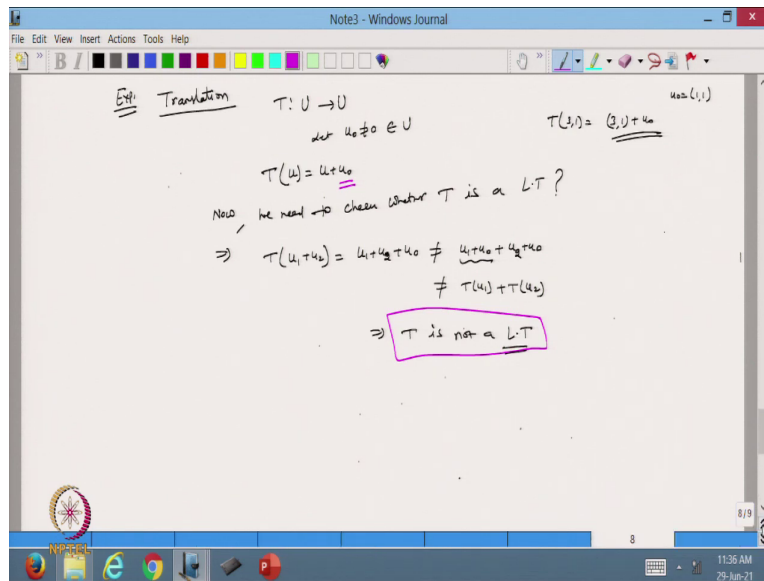 Note3 - Windows Journal
File Edit View Insert Actions Tools Help
Exp: Translation T: U → U
let u₀ ≠ 0 ∈ U
u₀ = (1,1)
T(3,1) = (3,1) + u₀
T(u) = u + u₀
Now, we need to check whether T is a L.T ?
⇒ T(u₁+u₂) = u₁+u₂+u₀ ≠ u₁+u₀ + u₂+u₀
≠ T(u₁) + T(u₂)
⇒ T is not a L.T
8/9
8
NPTEL
11:36 AM
29-Jun-21